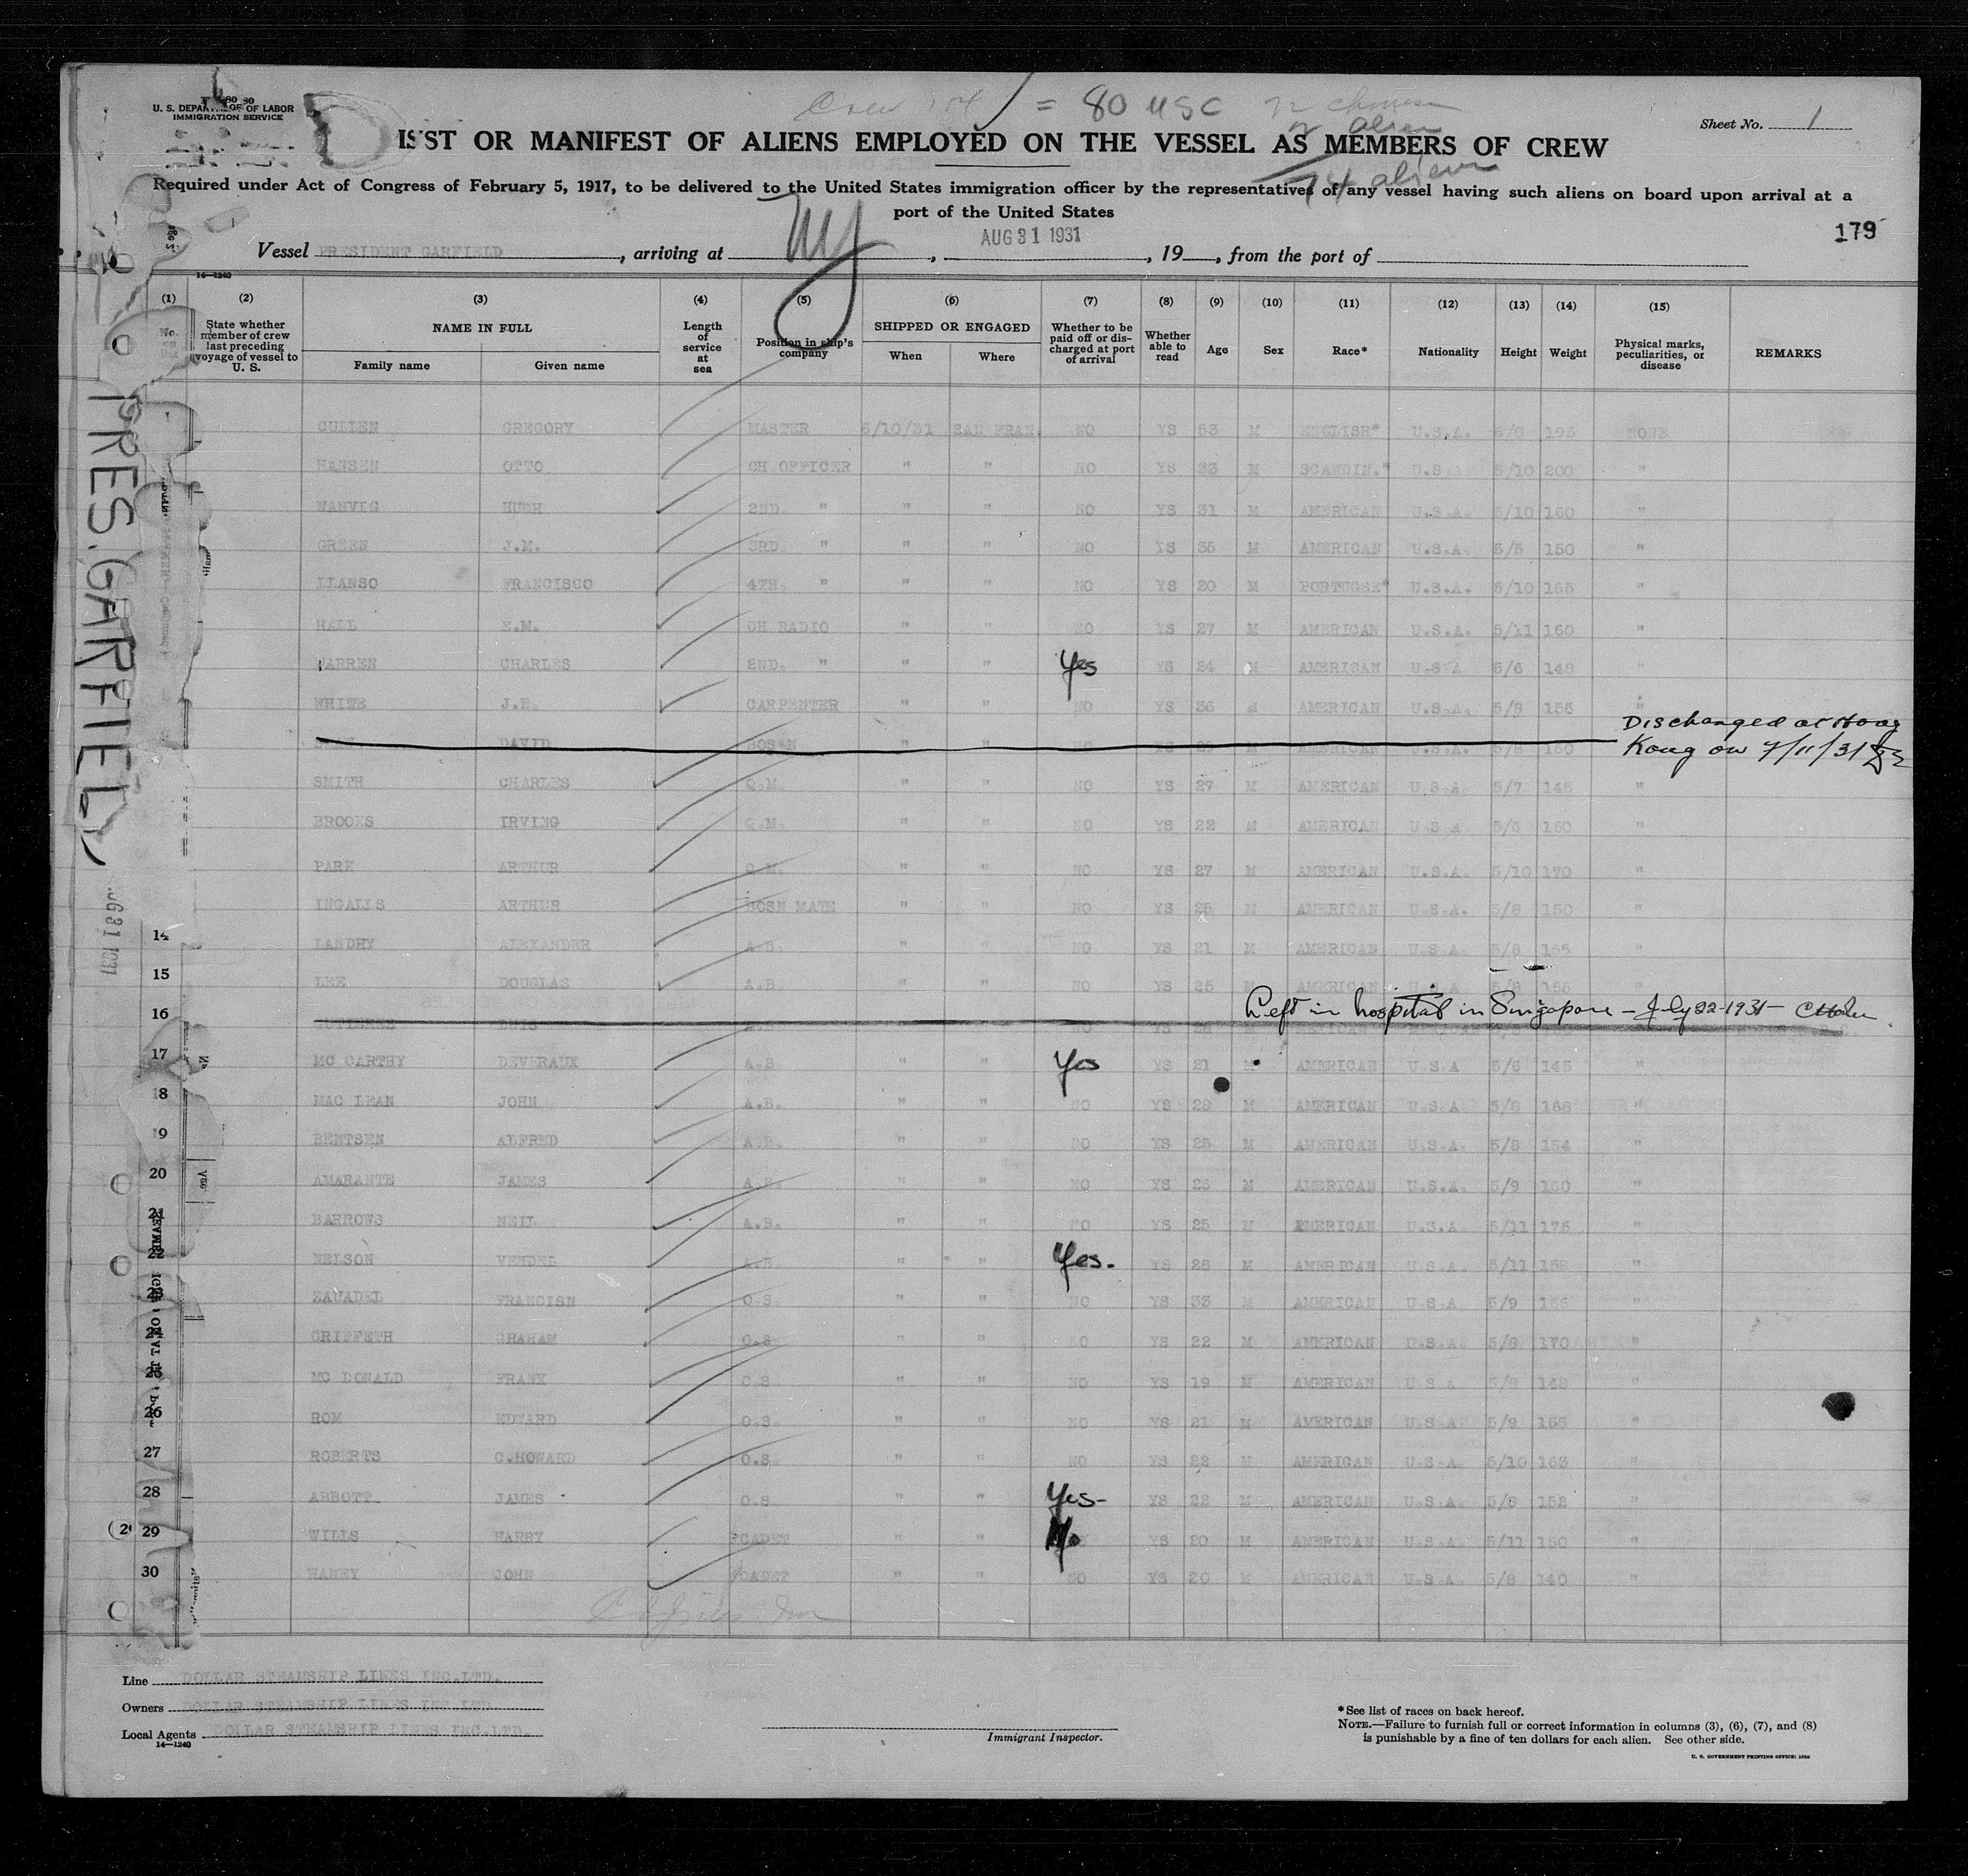 U. S. DEPARTMENT OF LABOR
IMMIGRATION SERVICE
Crew 154 = 80 USC
Sheet No. 1
LIST OR MANIFEST OF ALIENS EMPLOYED ON THE VESSEL AS MEMBERS OF CREW
74 aliens
Required under Act of Congress of February 5, 1917, to be delivered to the United States immigration officer by the representatives of any vessel having such aliens on board upon arrival at a
port of the United States
179
Vessel PRESIDENT GARFIELD, arriving at NY, AUG 31 1931, 19__, from the port of
14—1240
(1) (2) (3) (4) (5) (6) (7) (8) (9) (10) (11) (12) (13) (14) (15)
No. on List | State whether member of crew last preceding voyage of vessel to U. S. | NAME IN FULL Family name Given name | Length of service at sea | Position in ship's company | SHIPPED OR ENGAGED When Where | Whether to be paid off or discharged at port of arrival | Whether able to read | Age | Sex | Race* | Nationality | Height | Weight | Physical marks, peculiarities, or disease | REMARKS
CULLEN GREGORY MASTER 5/10/31 SAN FRAN. NO YS 53 M ENGLISH* U.S.A. 6/0 195 NONE
HANSEN OTTO CH OFFICER " " NO YS 33 M SCANDIN.* U.S.A 5/10 200 "
WANVIG HUGH 2ND " " " NO YS 31 M AMERICAN U.S.A. 5/10 160 "
GREEN J.M. 3RD " " " NO YS 35 M AMERICAN U.S.A 5/5 150 "
LLANSO FRANCISCO 4TH. " " " NO YS 20 M PORTUGSE* U.S.A. 5/10 165 "
HALL E.M. CH RADIO " " NO YS 27 M AMERICAN U.S.A. 5/11 160 "
WARREN CHARLES 2ND. " " " Yes YS 24 M AMERICAN U.S.A 5/6 148 "
WHITE J.E. CARPENTER " " NO YS 36 M AMERICAN U.S.A. 5/9 155 "
DAVID BOSEN Discharged at Hong
Kong on 7/11/31
SMITH CHARLES Q.M. " " NO YS 27 M AMERICAN U S A 5/7 145 "
BROOKS IRVING Q.M. " " NO YS 22 M AMERICAN U S A 5/5 150 "
PARK ARTHUR Q.M. " " NO YS 27 M AMERICAN U.S.A. 5/10 170 "
INGALLS ARTHUR BOSN MATE " " NO YS 25 M AMERICAN U.S.A. 5/8 150 "
14 LANDRY ALEXANDER A.B. " " NO YS 21 M AMERICAN U.S.A 5/8 165 "
15 LEE DOUGLAS A.B. " " NO YS 25 AMERICAN 5/8 155
16 Left in hospital in Singapore – July 22-1931–
17 MC CARTHY DEVERAUX A.B. " " Yes YS 21 M AMERICAN U S A 5/6 145 "
18 MAC LEAN JOHN A.B. " " NO YS 28 M AMERICAN U.S.A 5/8 168 "
19 BENTSEN ALFRED A.B. " " NO YS 25 M AMERICAN U.S.A. 5/8 154 "
20 AMARANTE JAMES A.B. " " NO YS 23 M AMERICAN U.S.A. 5/9 160 "
21 BARROWS NEIL A.B. " " NO YS 25 M AMERICAN U.S.A. 5/11 175 "
22 NELSON VENDEL A.B. " " Yes. YS 28 M AMERICAN U.S.A. 5/11 158 "
23 ZAUADEL FRANCISN O.S. " " NO YS 33 M AMERICAN U S A 5/9 166 "
24 GRIFFETH GRAHAM O.S. " " NO YS 22 M AMERICAN U.S.A 5/8 170 "
25 MC DONALD FRANK O.S. " " NO YS 19 M AMERICAN U S A 5/8 148 "
26 ROM EDWARD O.S. " " NO YS 21 M AMERICAN U.S.A 5/9 155 "
27 ROBERTS C.HOWARD O.S. " " NO YS 22 M AMERICAN U.S.A. 5/10 163 "
28 ABBOTT JAMES O.S. " " Yes- YS 22 M AMERICAN U.S.A. 5/8 152 "
29 WILLS HARRY CADET " " No YS 20 M AMERICAN U.S.A. 5/11 150 "
30 HANEY JOHN CADET " " NO YS 20 M AMERICAN U.S.A. 5/8 140 "
PRES. GARFIELD
Line DOLLAR STEAMSHIP LINES INC.LTD.
Owners DOLLAR STEAMSHIP LINES INC LTD.
Local Agents DOLLAR STEAMSHIP LINES INC.LTD.
14—1240
Immigrant Inspector.
*See list of races on back hereof.
NOTE.—Failure to furnish full or correct information in columns (3), (6), (7), and (8)
is punishable by a fine of ten dollars for each alien. See other side.
U. S. GOVERNMENT PRINTING OFFICE: 1930